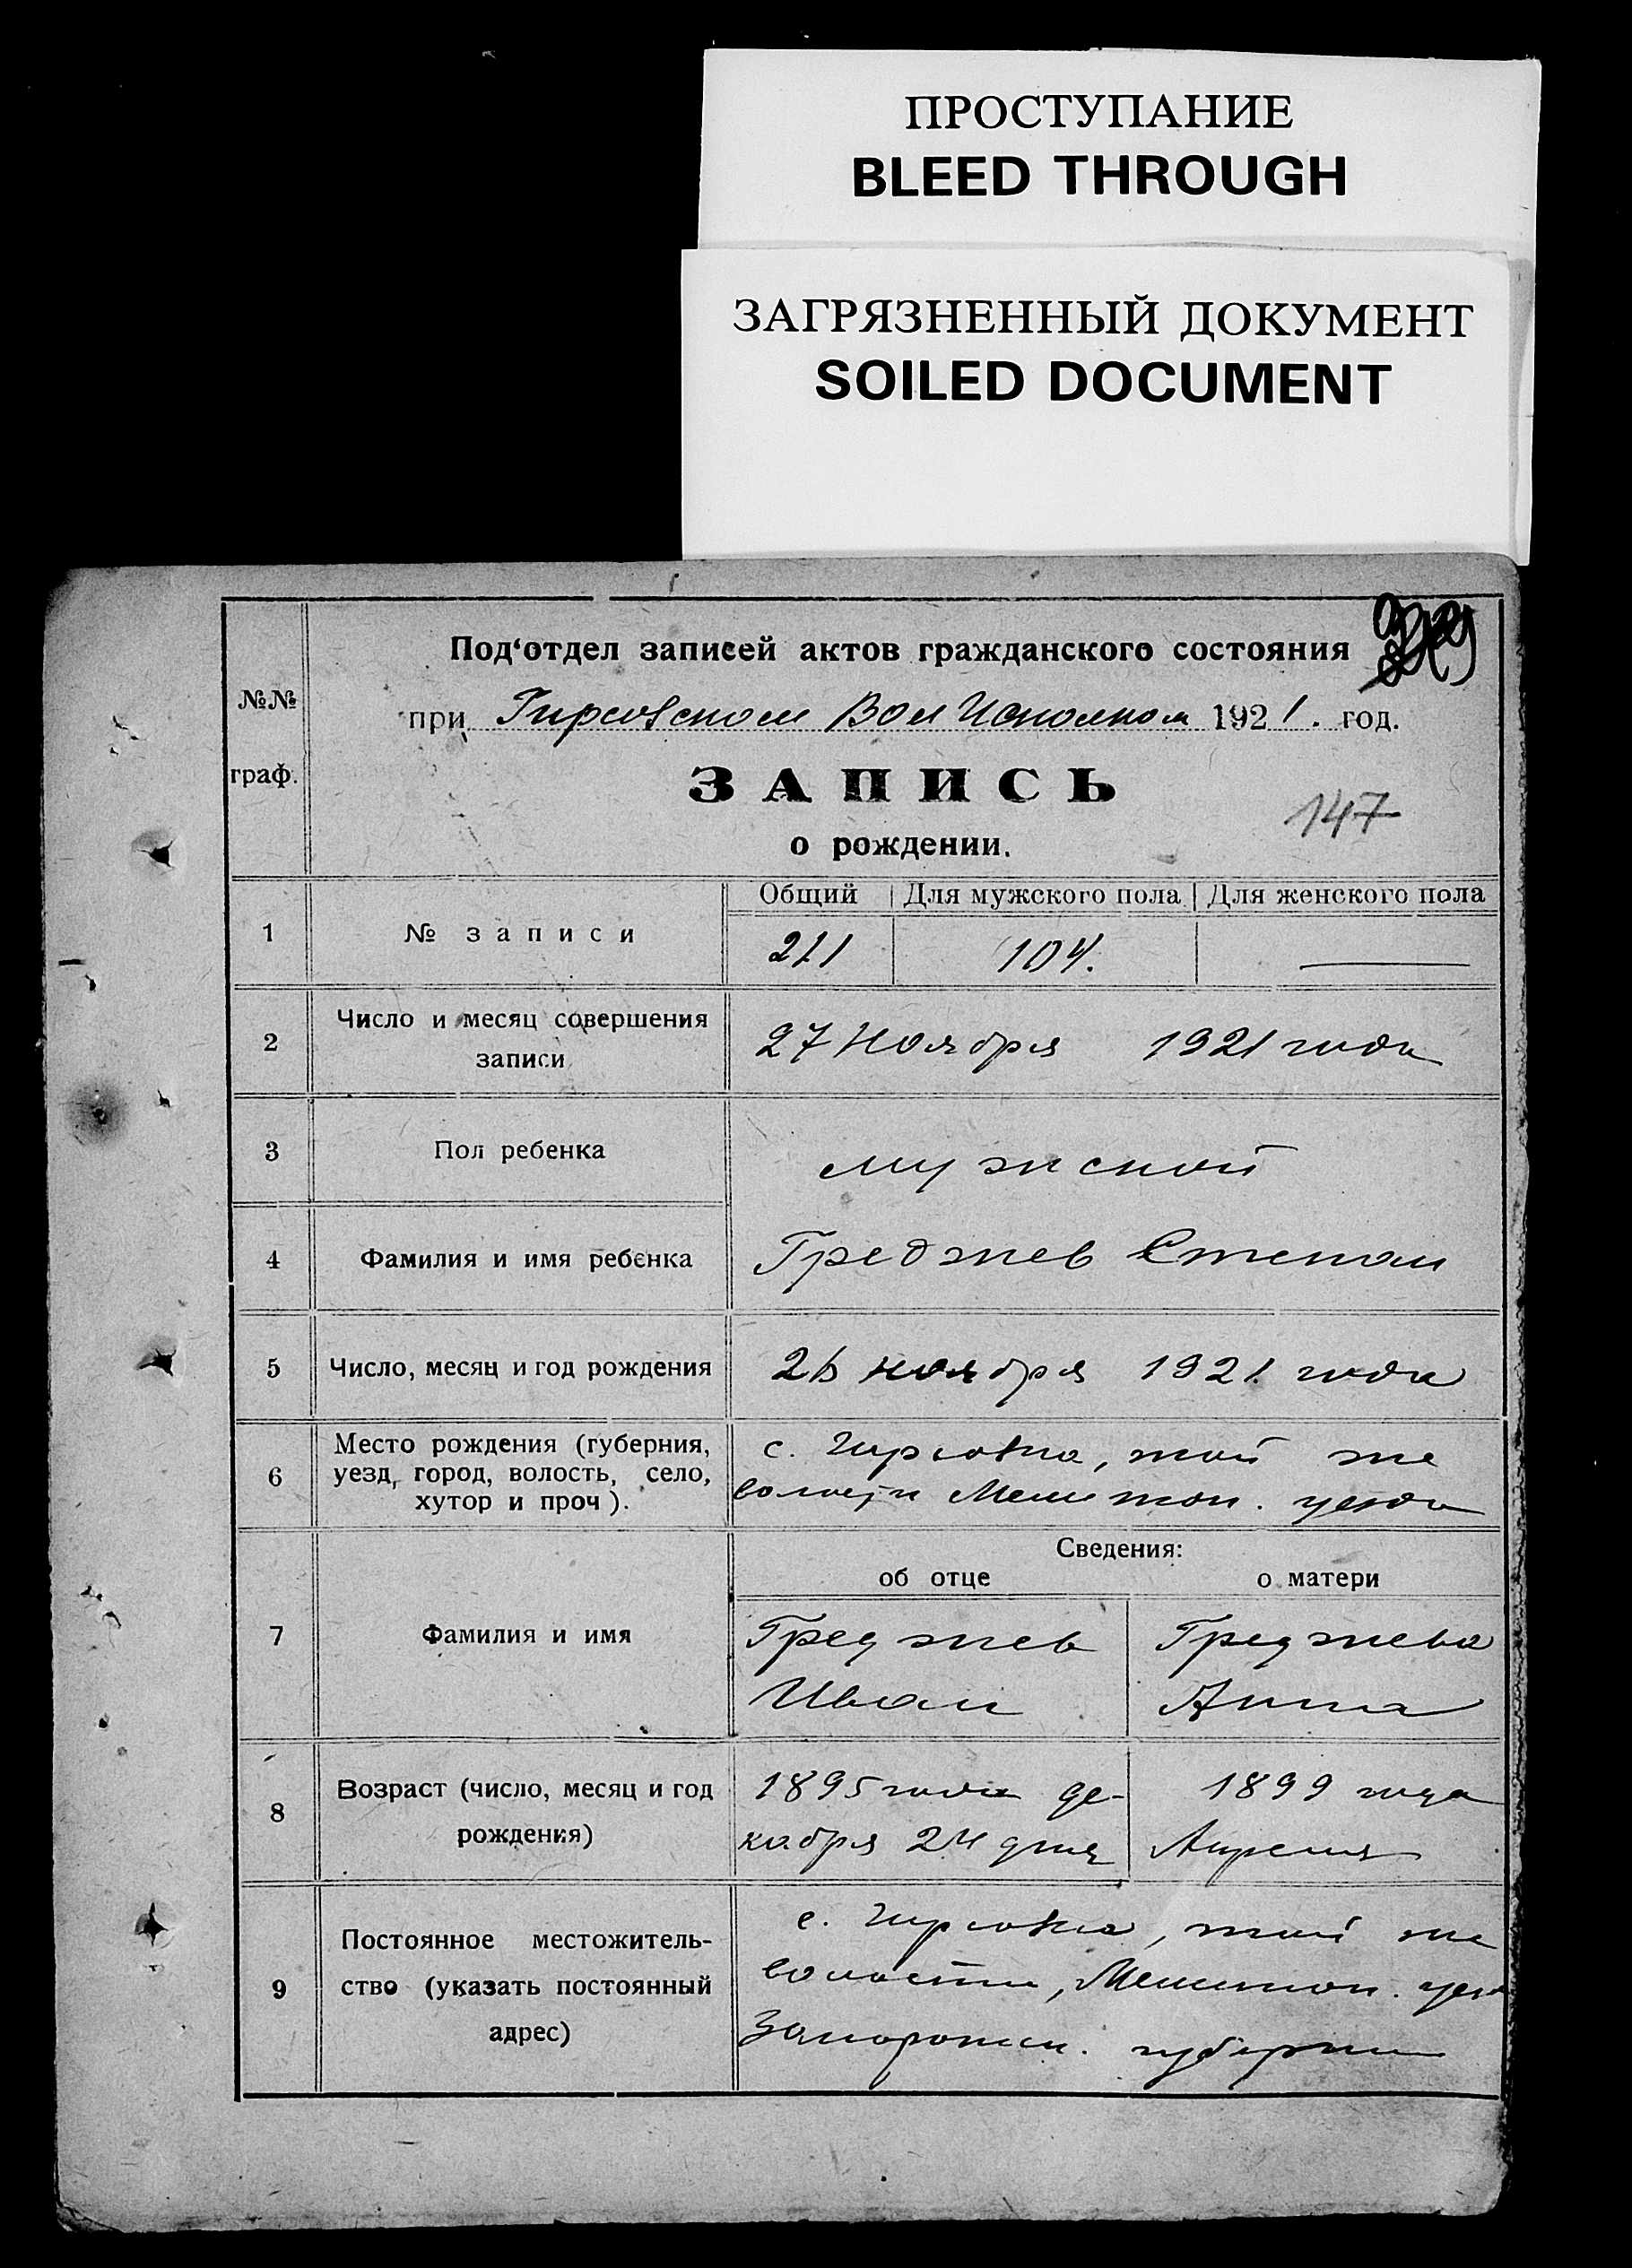 ПРОСТУПАНИЕ
BLEED THROUGH
ЗАГРЯЗНЕННЫЙ ДОКУМЕНТ
SOILED DOCUMENT
№№
граф.
Под‘отдел записей актов гражданского состояния
при Гирсовском Вол Исполком 1921. год.
ЗАПИСЬ
147
о рождении.
Общий Для мужского пола Для женского пола
1 № записи
211 104.
2 Число и месяц совершения
записи
27 Ноября 1921 года
3 Пол ребенка
мужской
4 Фамилия и имя ребенка
Греджев Степан
5 Число, месяц и год рождения
26 ноября 1921 года
6 Место рождения (губерния,
уезд, город, волость, село,
хутор и проч).
с. Гирсовка, той же
волости Мелитоп. уезда
Сведения:
об отце о матери
7 Фамилия и имя
Греджев Греджева
Иван Анна
8 Возраст (число, месяц и год
рождения)
1895 года де- 1899 года
кабря 24 дня Апреля
9 Постоянное местожитель-
ство (указать постоянный
адрес)
с. Гирсовка, той же
волости, Мелитоп. уез
Запорожск. губернии